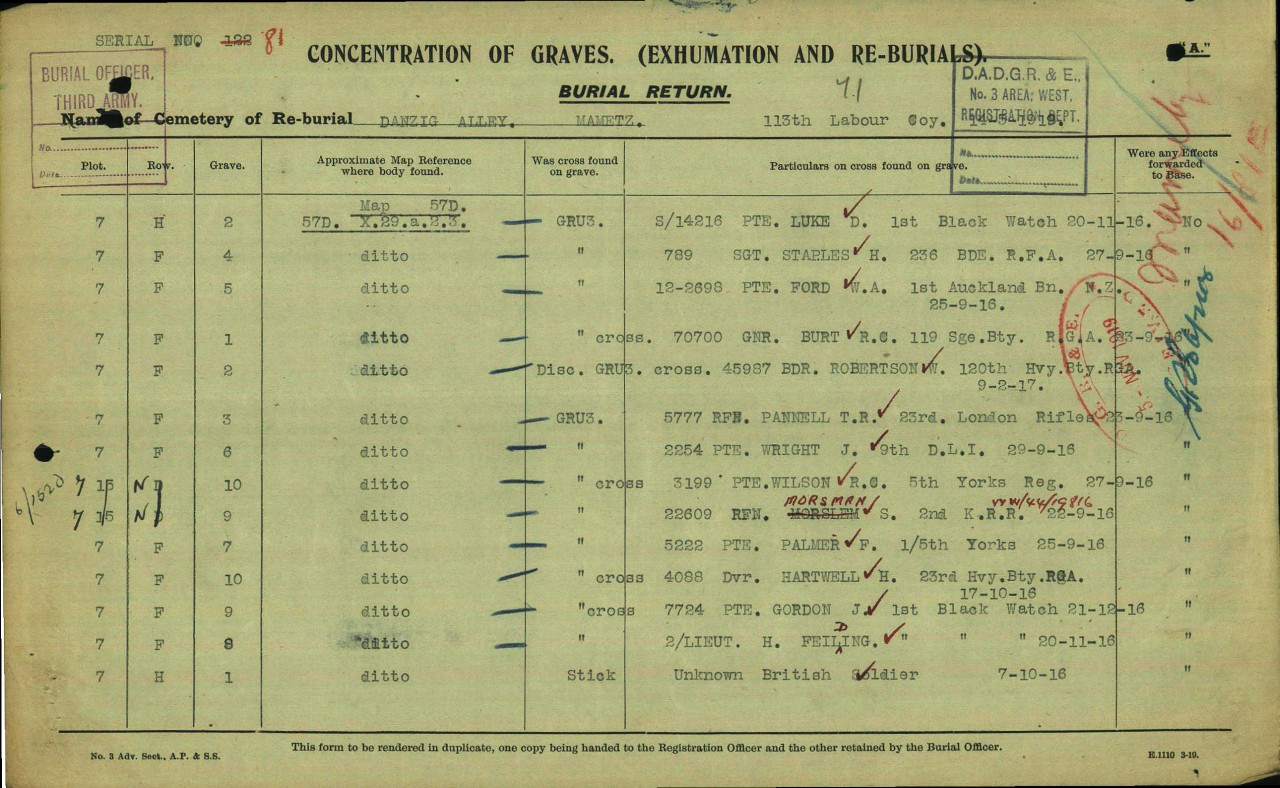 SERIAL NO 122 81
CONCENTRATION OF GRAVES. (EXHUMATION AND RE-BURIALS).
"A."
BURIAL OFFICER,
THIRD ARMY.
No.
Date
BURIAL RETURN.
D.A.D.G.R. & E.,
No. 3 AREA, WEST,
REGISTRATION DEPT.
No.
Date
Name of Cemetery of Re-burial DANZIG ALLEY. MAMETZ. 113th Labour Coy. 14-5-1919.
Plot. Row. Grave. Approximate Map Reference where body found. Was cross found on grave. Particulars on cross found on grave. Were any Effects forwarded to Base.
Map 57D.
7 H 2 57D. X.29.a.2.3. GRU3. S/14216 PTE. LUKE D. 1st Black Watch 20-11-16. No
7 F 4 ditto " 789 SGT. STAPLES H. 236 BDE. R.F.A. 27-9-16 "
7 F 5 ditto " 12-2698 PTE. FORD W.A. 1st Auckland Bn. N.Z. "
25-9-16.
7 F 1 ditto " cross. 70700 GNR. BURT R.C. 119 Sge.Bty. R.G.A. 23-9-16
7 F 2 ditto Disc. GRU3. cross. 45987 BDR. ROBERTSON W. 120th Hvy.Bty.RGA.
9-2-17.
7 F 3 ditto GRU3. 5777 RFN. PANNELL T.R. 23rd. London Rifles 23-9-16 "
7 F 6 ditto " 2254 PTE. WRIGHT J. 9th D.L.I. 29-9-16 "
7 15 N D 10 ditto " cross 3199 PTE.WILSON R.C. 5th Yorks Reg. 27-9-16 "
MORSMAN
7 15 N D 9 ditto " 22609 RFN. MORSLEM S. 2nd K.R.R. 22-9-16 "
7 F 7 ditto " 5222 PTE. PALMER F. 1/5th Yorks 25-9-16 "
7 F 10 ditto " cross 4088 Dvr. HARTWELL H. 23rd Hvy.Bty.RGA. "
17-10-16
7 F 9 ditto "cross 7724 PTE. GORDON J. 1st Black Watch 21-12-16 "
D
7 F 8 ditto " 2/LIEUT. H. FEILING. " " " 20-11-16 "
7 H 1 ditto Stick Unknown British Soldier 7-10-16 "
This form to be rendered in duplicate, one copy being handed to the Registration Officer and the other retained by the Burial Officer.
No. 3 Adv. Sect., A.P. & S.S.
E.1110 3-19.